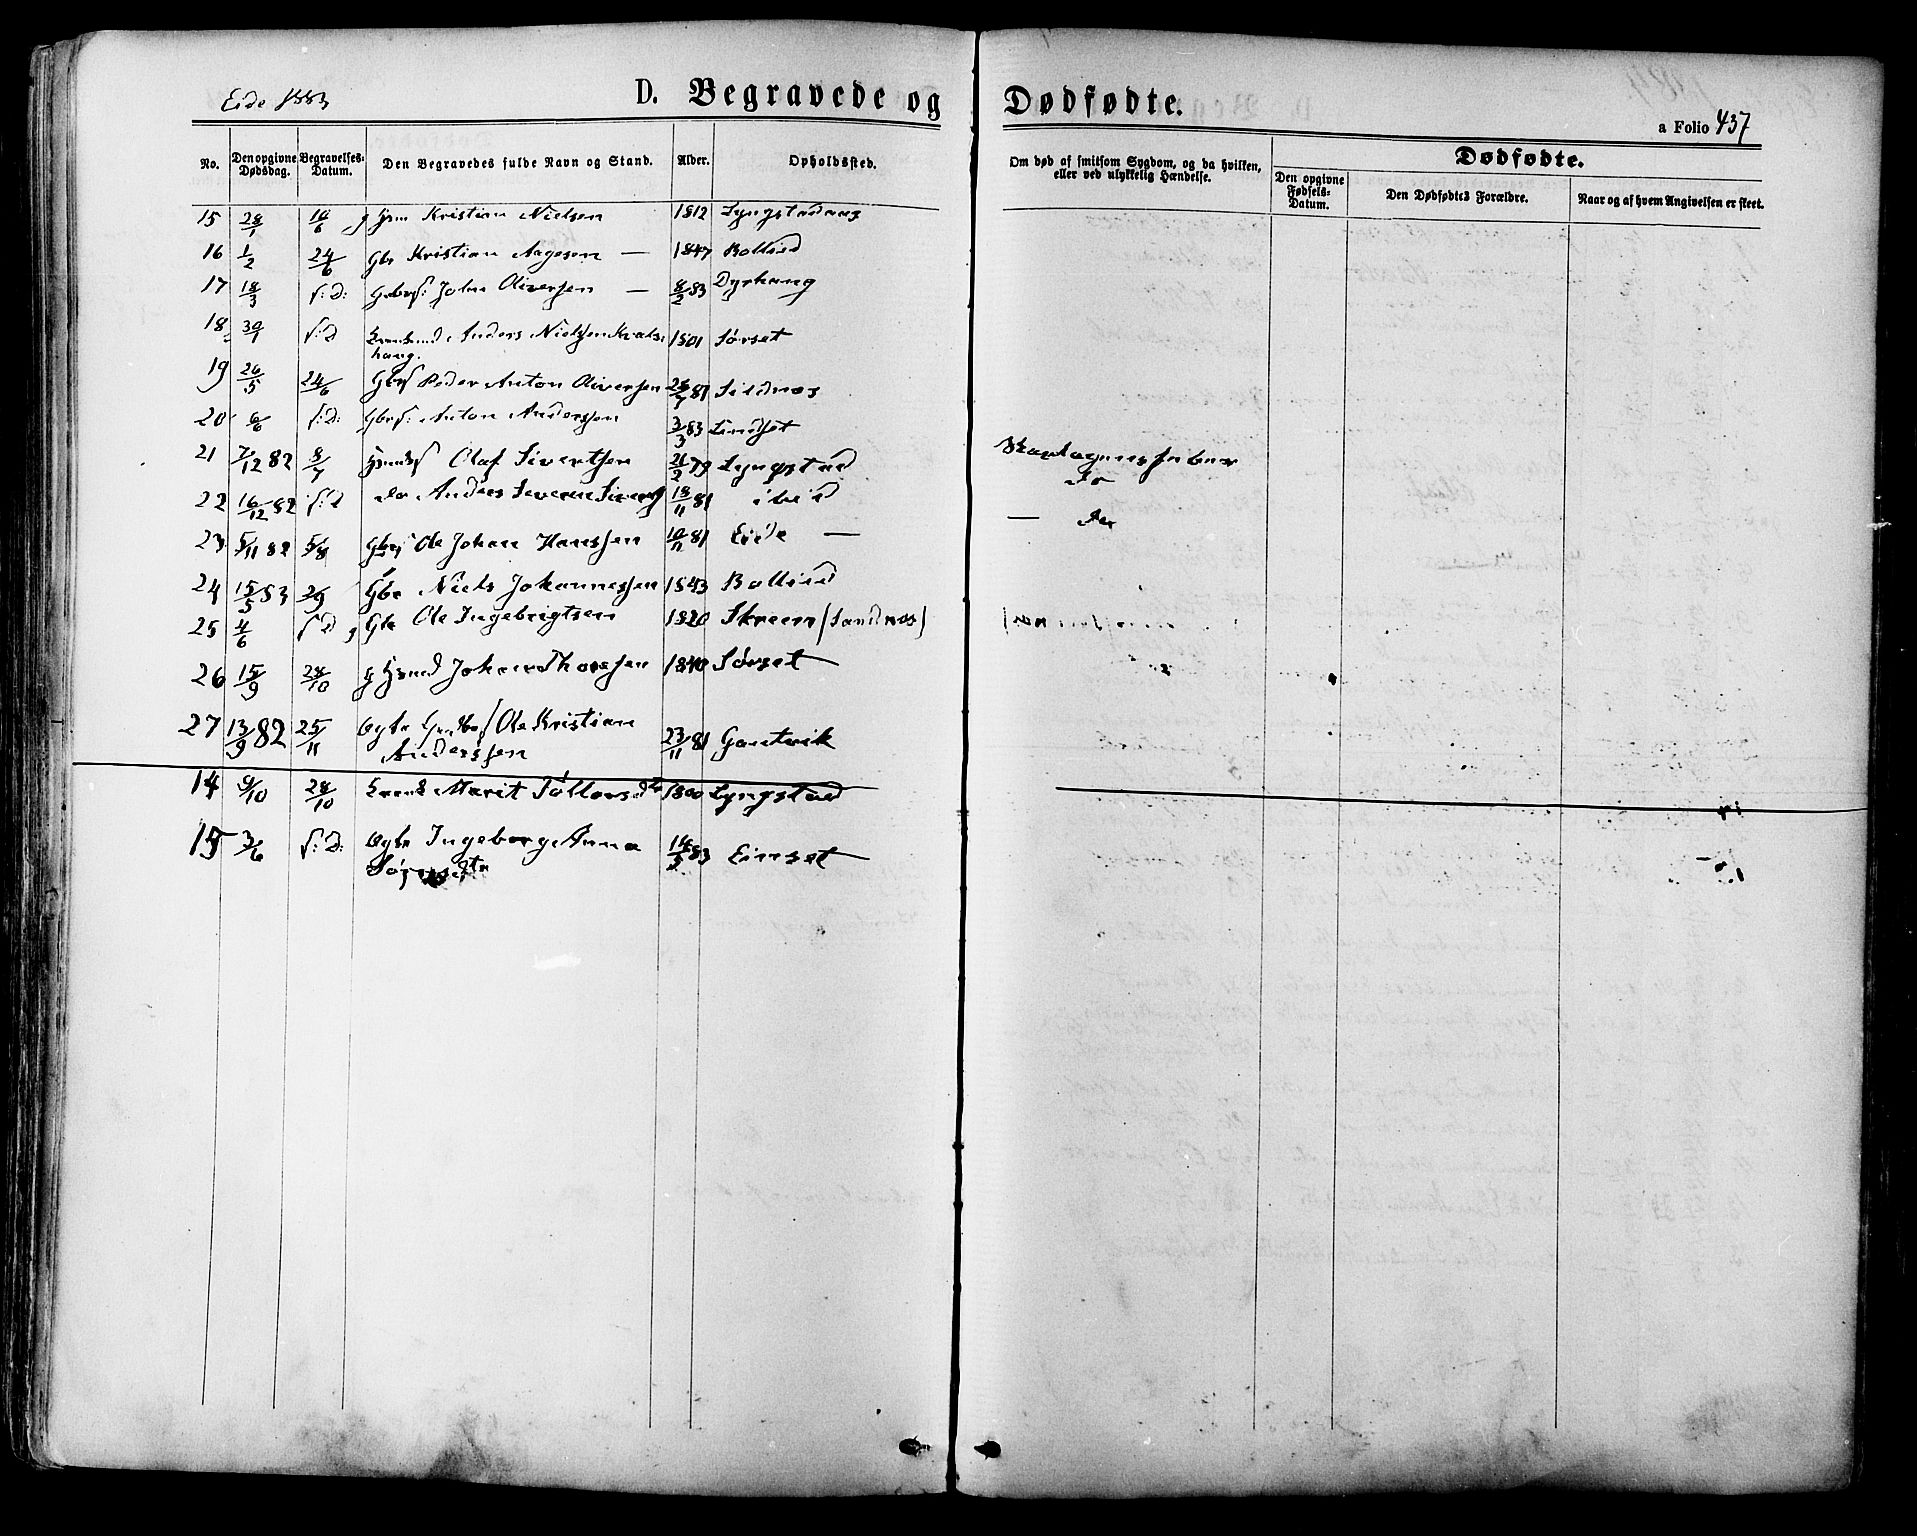 Eide 1883
D. Begravede og Dødfødte.
a Folio 437
No. Den opgivne Dødsdag. Begravelses-Datum. Den Begravedes fulde Navn og Stand. Alder. Opholdssted. Om død af smitsom Sygdom, og da hvilken, eller ved ulykkelig Hændelse. Dødfødte.
Den opgivne Fødsels-Datum. Den Dødfødtes Forældre. Naar og af hvem Angivelsen er skeet.
15 28/1 10/6 Kristian Nielsen 1812 Lyngstadaas
16 1/2 24/6 Gbr Kristian Aagesen — 1847 Bollied
17 18/3 s: D: Gbrs: John Oliversen — 8/2 83 Dyrhaug
18 30/1 s: D Anders Nielsen Kvals-
haug. 1801 Sørset
19 26/5 24/6 Gbrs Peder Anton Oliversen 81 Sildnes
20 6/6 s: D: Gbrs: Anton Anderssen 3/3 83 Lindset
21 7/12 82 8/7 Olaf Sivertsen 21/2 79 Lyngstad Skarlagensfeber
22 16/12 82 s: d do Anders Severin 13/11 81 ibid do
23 5/11 82 5/8 Gbrs Ole Johan Hanssen 10/11 81 Eide —
24 15/5 83 2/9 Gbr Niels Johannessen 1843 Bollied
25 4/6 s D Gbr Ole Ingebrigtsen 1820 Skreen (Sandnes)
26 15/9 28/10 Johan Thoessen 1840 Sørset
27 13/9 82 25/11 Ole Kristian
Anderssen 23/11 81 Gautvik
14 9/10 28/10 Marit 1800 Lyngstad
15 3/6 s: D: Ingeborg Anna 14/5 83 Einset